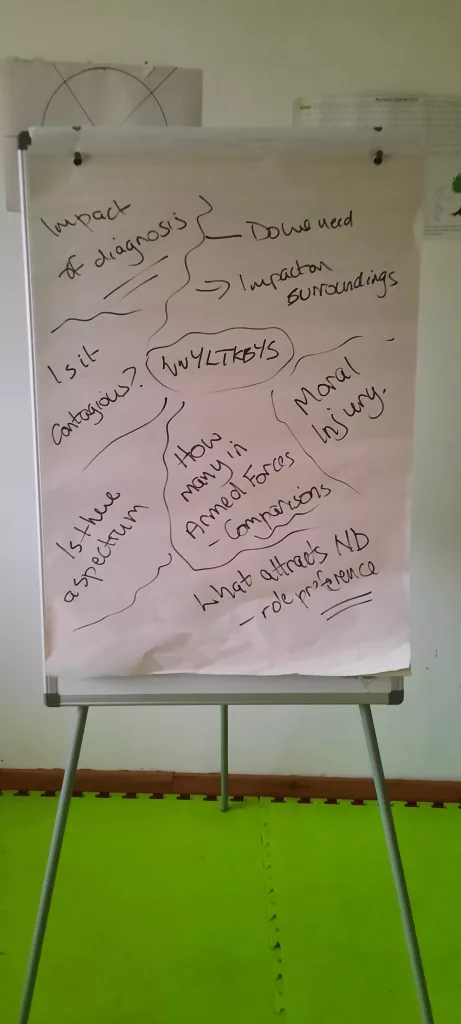 Impact
of diagnosis
Do we need
→ Impact on
surroundings
Is it
contagious?
WWYLTKBYS
Moral
Injury.
How
many in
Armed Forces
- Comparisons
Is there
a spectrum
What attracts ND
- role preference